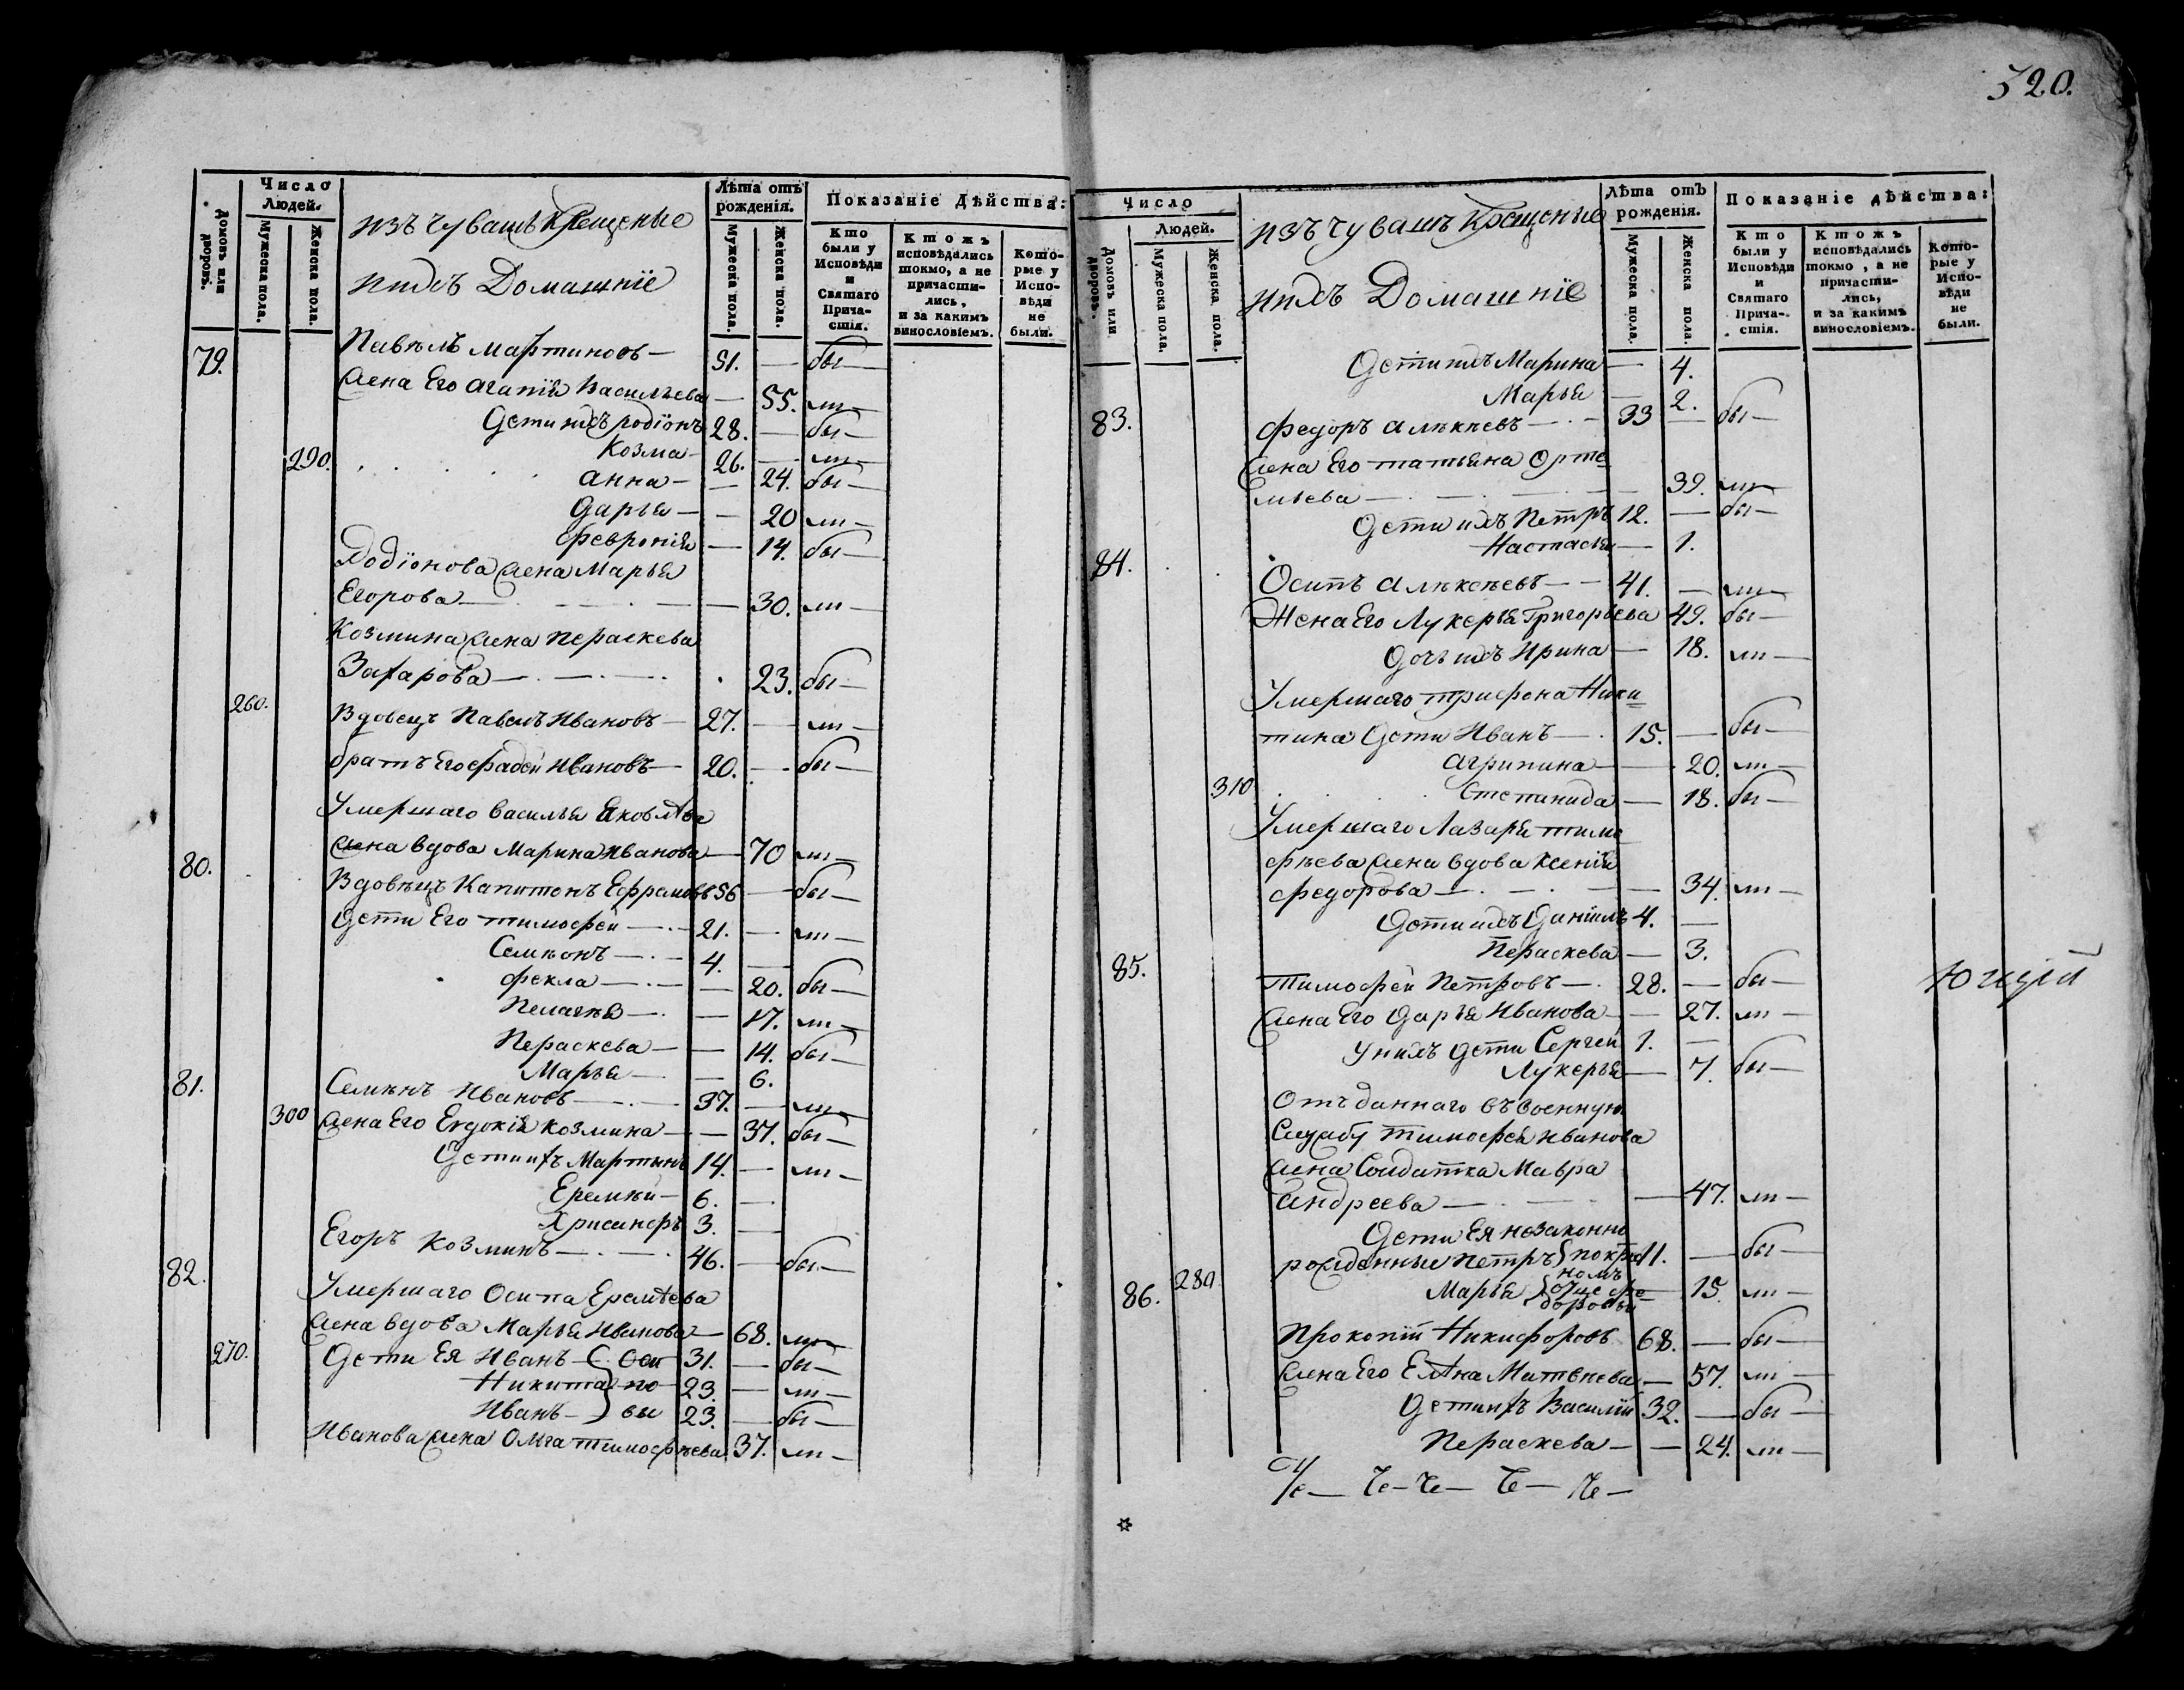 320.
Число Людей.
Домовъ или дворовъ.
Мужеска пола.
Женска пола.
изъ чувашъ Крещеные
ихъ Домашніе
Лѣта отъ рожденія.
Мужеска пола.
Женска пола.
Показаніе Дѣйства:
Кто были у Исповѣди и Святаго Причастія.
Ктожъ исповѣдались токмо, а не причастились, и за какимъ винословіемъ.
Которые у Исповѣди не были.
79. Павелъ Мартиновъ — 51. — бы —
жена Его Агапія Васильева — 55. ли —
Дети ихъ родіонъ 28. — бы —
290. Козма — 26. — ли —
Анна — — 24. бы —
Дарья — — 20 ли —
Февронія — 14. бы —
Родіонова жена Марья
Егорова — 30. ли —
Козмина жена Пераскева
Захарова — 23. бы —
260. Вдовецъ Павелъ Ивановъ — 27. — ли —
братъ Его Фадей Ивановъ — 20. — бы —
Умершаго Василья Яковлѣва
жена вдова Марина Иванова — 70 ли —
80. Вдовецъ Капитонъ Ефремовъ 56 — бы —
Дети Его тимофей — 21. — ли —
Семионъ — 4. —
Фекла — — 20. бы —
Пелагея — — 17. ли —
Пераскева — — 14. бы —
Марья — — 6.
81. Семенъ Ивановъ — 37. — ли —
300 жена Его Евдокія Козмина — — 37. бы —
Дети ихъ Мартынъ 14. — ли —
Еремѣй — 6. —
Хрисанфъ 3. —
Егоръ Козминъ — 46. — бы —
82. Умершаго Осипа Еремѣева
жена вдова Марья Иванова — 68. ли —
270. Дети Ея Иванъ — Оси 31. — бы —
Никита по 23. — ли —
Иванъ — вы 23. — бы —
Иванова жена Олга тимофѣева 37. ли —
Число Людей.
Домовъ или дворовъ.
Мужеска пола.
Женска пола.
изъ чувашъ Крещеные
ихъ Домашніе
Лѣта отъ рожденія.
Мужеска пола.
Женска пола.
Показаніе дѣйства:
Кто были у Исповѣди и Святаго Причастія.
Ктожъ исповѣдались токмо, а не причастились, и за какимъ винословіемъ.
Которые у Исповѣди не были.
Дети ихъ Марина — 4.
Марья — 2.
83. Федоръ Алекѣевъ — 33 — бы —
жена Его татьяна Орте
мьева — 39. ли —
Дети ихъ Петръ 12. — бы —
Настасья — 1.
84. Осипъ Алексѣевъ — 41. — ли —
Жена Его Лукерья Григорьева 49. бы —
Дочь ихъ Ирина — 18. ли —
Умершаго трифона Ники
тина Дети Иванъ — 15. — бы —
Агрипина — 20. ли —
310 Степанида — 18. бы —
Умершаго Лазаря тимо
фѣева жена вдова Ксенія
Федорова — 34. ли —
Дети ихъ Даніилъ 4. —
Пераскева — 3.
85. Тимофей Петровъ — 28. — бы —
жена Его Дарья Иванова — — 27. ли —
У нихъ Дети Сергей 1. —
Лукерья — 7. бы —
Отъданнаго въ военную
службу тимофея Иванова
жена Солдатка Мавра
Андреева — 47. ли —
Дети Ея незаконно
рожденные Петръ по крес 11. — бы —
280 Марья номъ отце фе — 15. ли —
доровы
86. Прокопій Никифоровъ 68. — бы —
жена Его Елѣна Матвѣева — 57. ли —
Дети ихъ Василій 32. — бы —
Пераскева — — 24. ли —